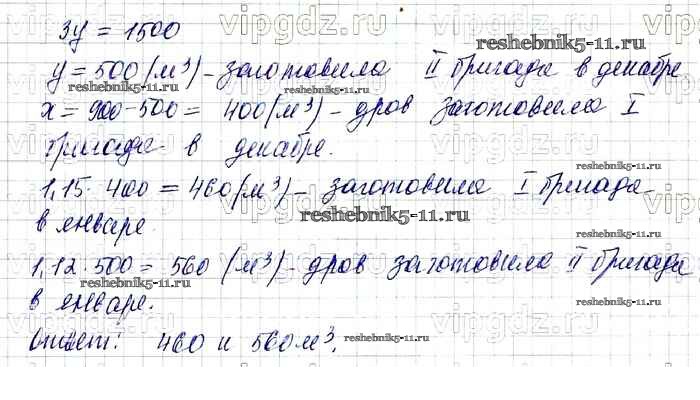 3y = 1500
y = 500 (м³) - заготовила II бригада в декабре
x = 900 - 500 = 400 (м³) - дров заготовила I
бригада в декабре.
1,15 · 400 = 460 (м³) - заготовила I бригада
в январе.
1,12 · 500 = 560 (м³) - дров заготовила II бригада
в январе.
Ответ: 460 и 560 м³.
vipgdz.ru
reshebnik5-11.ru